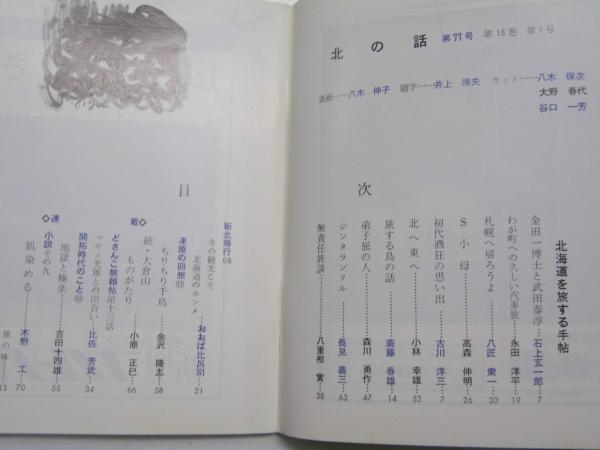 北の話 第77号 第15巻 第1号
表紙……八木 伸子 題字……井上 頭夫 カット……八木 保次
大野 春代
谷口 一芳
目次
北海道を旅する手帖
金田一博士と武田泰淳……石上玄一郎…7
わが町への久しい汽車旅……永田 洋平…19
札幌へ帰ろうよ……八匠 衆一…30
S小母……高森 伸明…26
初代酒狂の思い出……古川 洋三…7
北へ東へ……小林 幸雄…52
旅する鳥の話……斎藤 春雄…14
弟子屈の人……森川 勇作…47
シンタランケル……長見 義三…63
無責任旅談……八重樫 實…38
新北傷行
冬の観光とそ
北海道のホンメ……おおば比呂司…21
凍原の回想
ちりちり千鳥……金沢 隆志…58
続・大倉山
ものがたり……小原 正巳…66
どさんこ無頼帖 第十三話
マキノ光雄との出合い……比佐 芳武…34
開拓時代のこと
地獄と極楽……吉田十四雄…55
◇連載◇
小説その九
肌染める……木野 工…70
旅の味
13